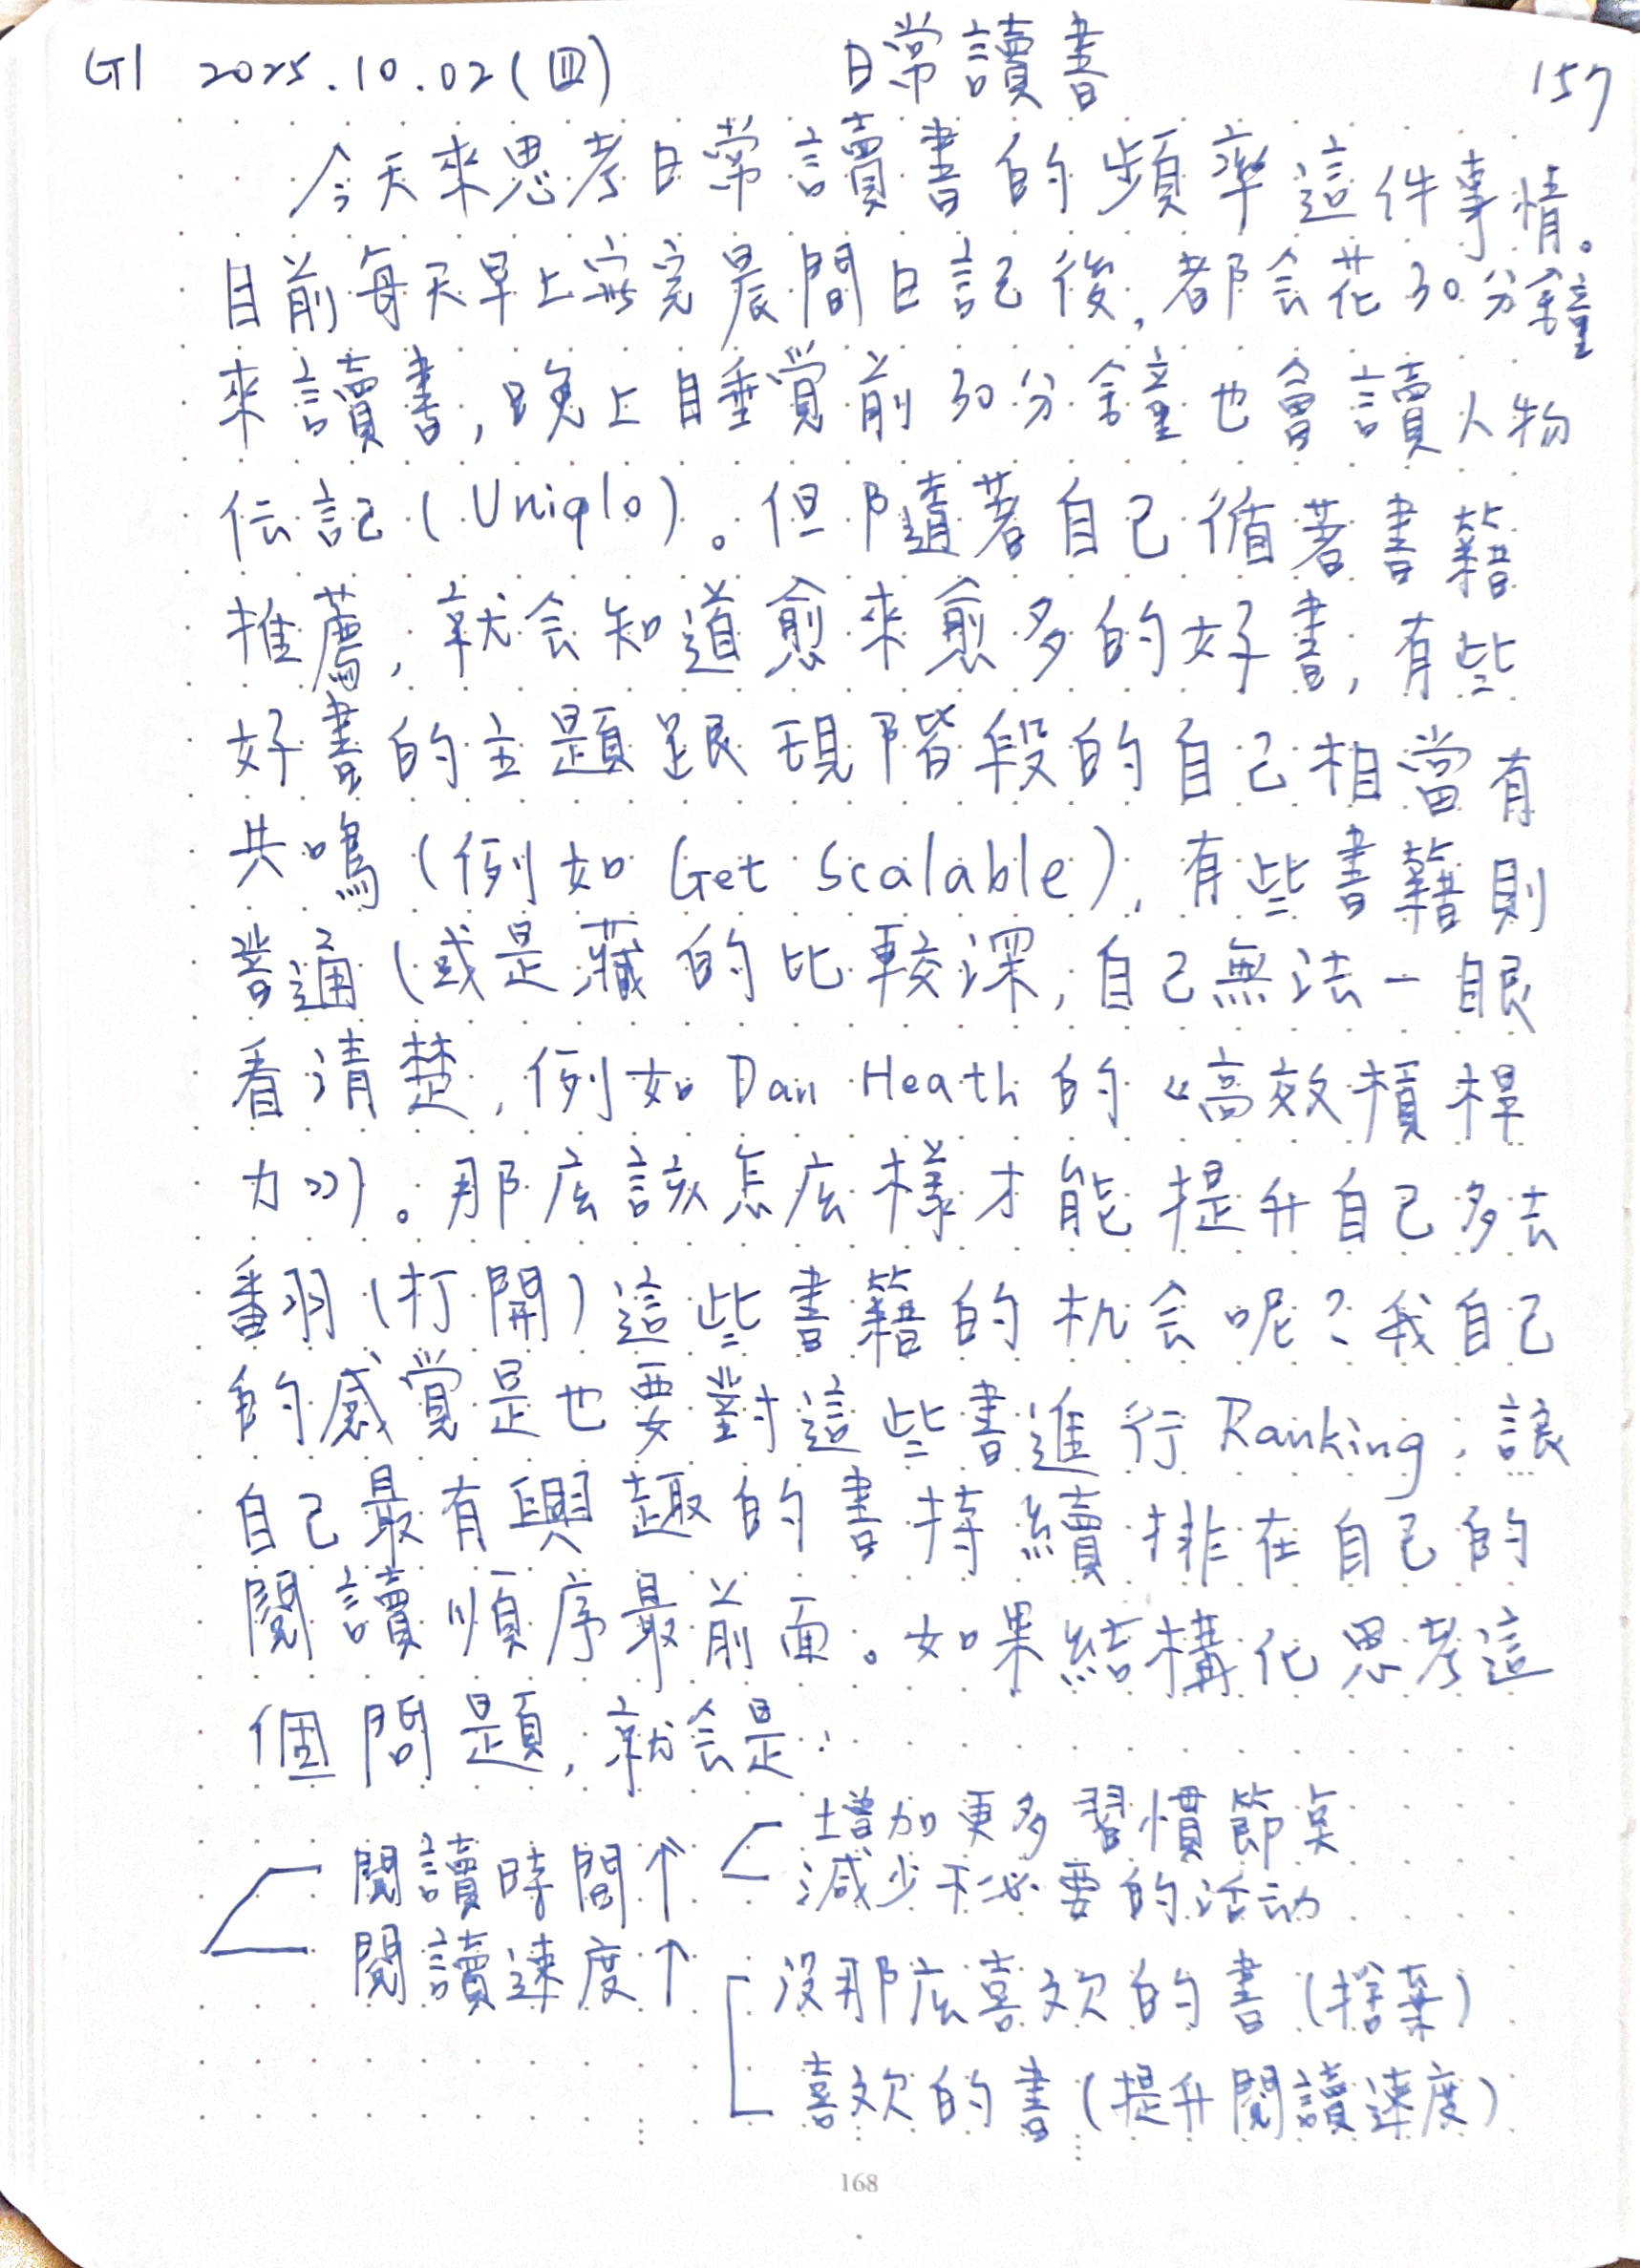 G1 2025.10.02(四) 日常讀書 157
今天來思考日常讀書的頻率這件事情。
目前每天早上寫完晨間日記後,都会花30分鐘
來讀書,晚上睡覚前30分鐘也會讀人物
伝記(Uniqlo)。但隨著自己循著書籍
推薦,就会知道愈來愈多的好書,有些
好書的主題跟現階段的自己相當有
共鳴(例如Get Scalable),有些書籍則
普通(或是藏的比較深,自己無法一眼
看清楚,例如Dan Heath的《高效槓桿
力》)。那庅該怎庅樣才能提升自己多去
翻(打開)這些書籍的机会呢?我自己
的感覚是也要對這些書進行Ranking,讓
自己最有興趣的書持續排在自己的
閱讀順序最前面。如果結構化思考這
個問題,就会是:
閱讀時間↑ 增加更多習慣節點
減少不必要的活动
閱讀速度↑ 沒那庅喜欢的書(捨棄)
喜欢的書(提升閱讀速度)
168